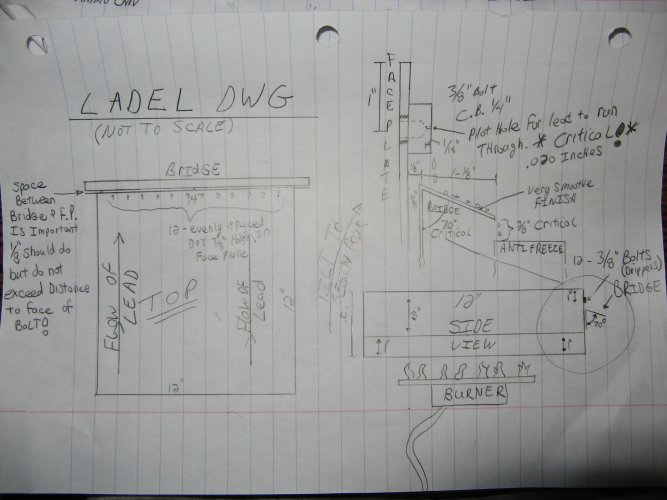 LADEL DWG
(NOT TO SCALE)
BRIDGE
Space
Between
Bridge & F.P.
Is Important
1/8 Should do
but do not
exceed Distance
to Face of
BOLT!
12 - evenly spaced
Face Plate
Flow of
LEAD
TOP
Flow of
Lead
12"
12"
FACE PLATE
1"
3/8" Bolt
C.B. 1/4"
Pilot Hole For lead to run
Through. * Critical! *
.020 Inches!
1/16"
1/8"
very Smooth
FINISH
BRIDGE
70°
Critical
3/8" Critical
ANTIFREEZE
12 - 3/8" Bolts
(Drippers)
BRIDGE
1"
70°
12"
SIDE
VIEW
2"
1"
1"
BURNER